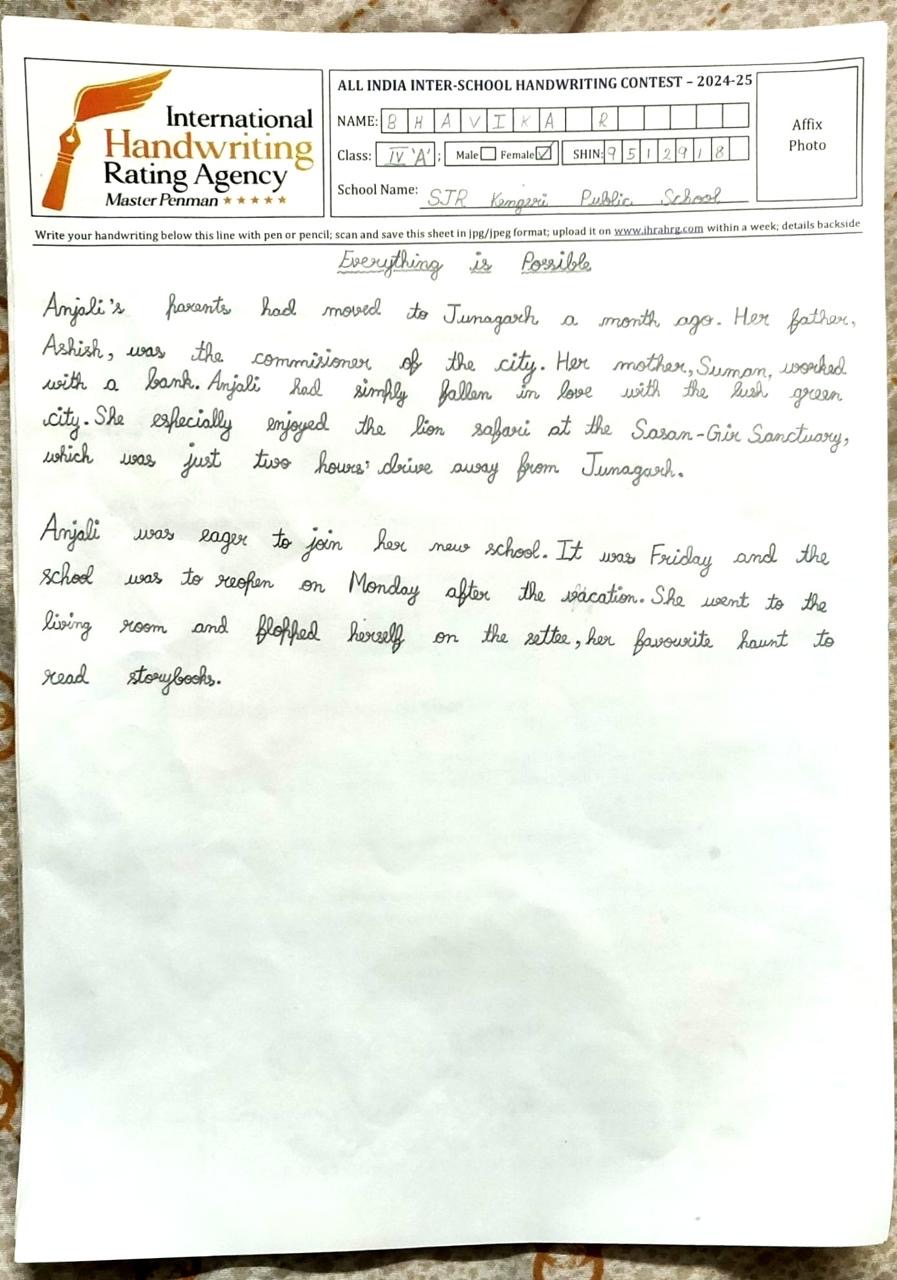 International
Handwriting
Rating Agency
Master Penman ★★★★★
ALL INDIA INTER-SCHOOL HANDWRITING CONTEST – 2024-25
NAME: BHAVIKA R
Class: IV 'A' ; Male Female ✓ SHIN: 9512918
School Name: SJR Kengeri Public School
Affix
Photo
Write your handwriting below this line with pen or pencil; scan and save this sheet in jpg/jpeg format; upload it on www.ihrahrg.com within a week; details backside
Everything is Possible
Anjali's parents had moved to Junagarh a month ago. Her father,
Ashish, was the commisioner of the city. Her mother, Suman, worked
with a bank. Anjali had simply fallen in love with the lush green
city. She especially enjoyed the lion safari at the Sasan-Gir Sanctuary,
which was just two hours' drive away from Junagarh.
Anjali was eager to join her new school. It was Friday and the
school was to reopen on Monday after the vacation. She went to the
living room and flopped herself on the settee, her favourite haunt to
read storybooks.